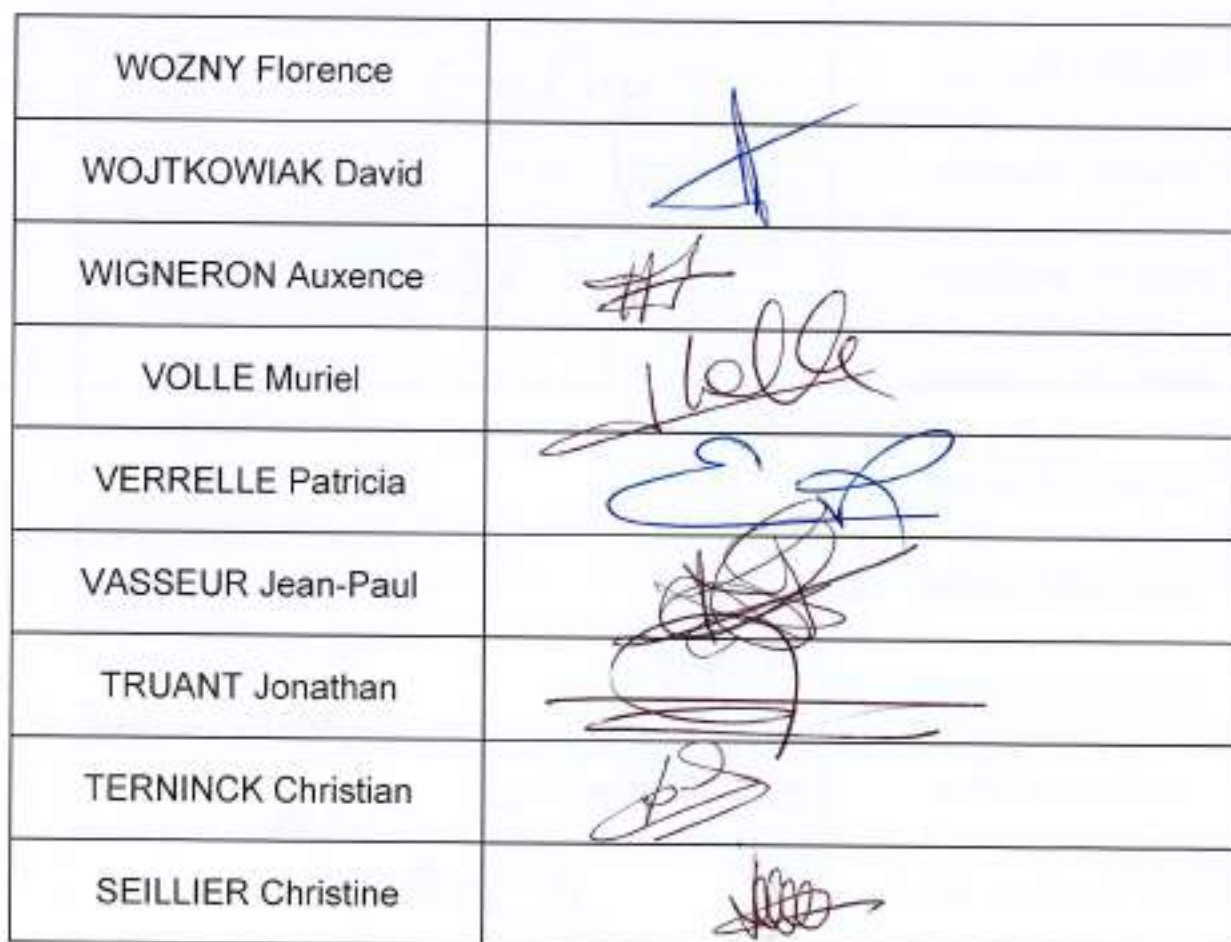 WOZNY Florence
WOJTKOWIAK David
WIGNERON Auxence
VOLLE Muriel
VERRELLE Patricia
VASSEUR Jean-Paul
TRUANT Jonathan
TERNINCK Christian
SEILLIER Christine